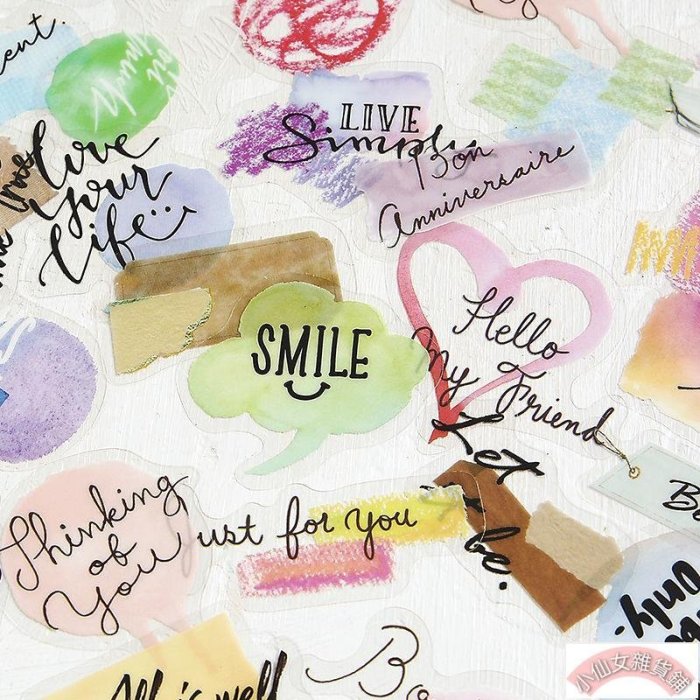 ent.
LIVE
Simply
Bon
Anniversaire
love
your
life
SMILE
Hello
My Friend
Let
be.
Thinking
of
You
Just for you
All is well
小仙女雜貨鋪